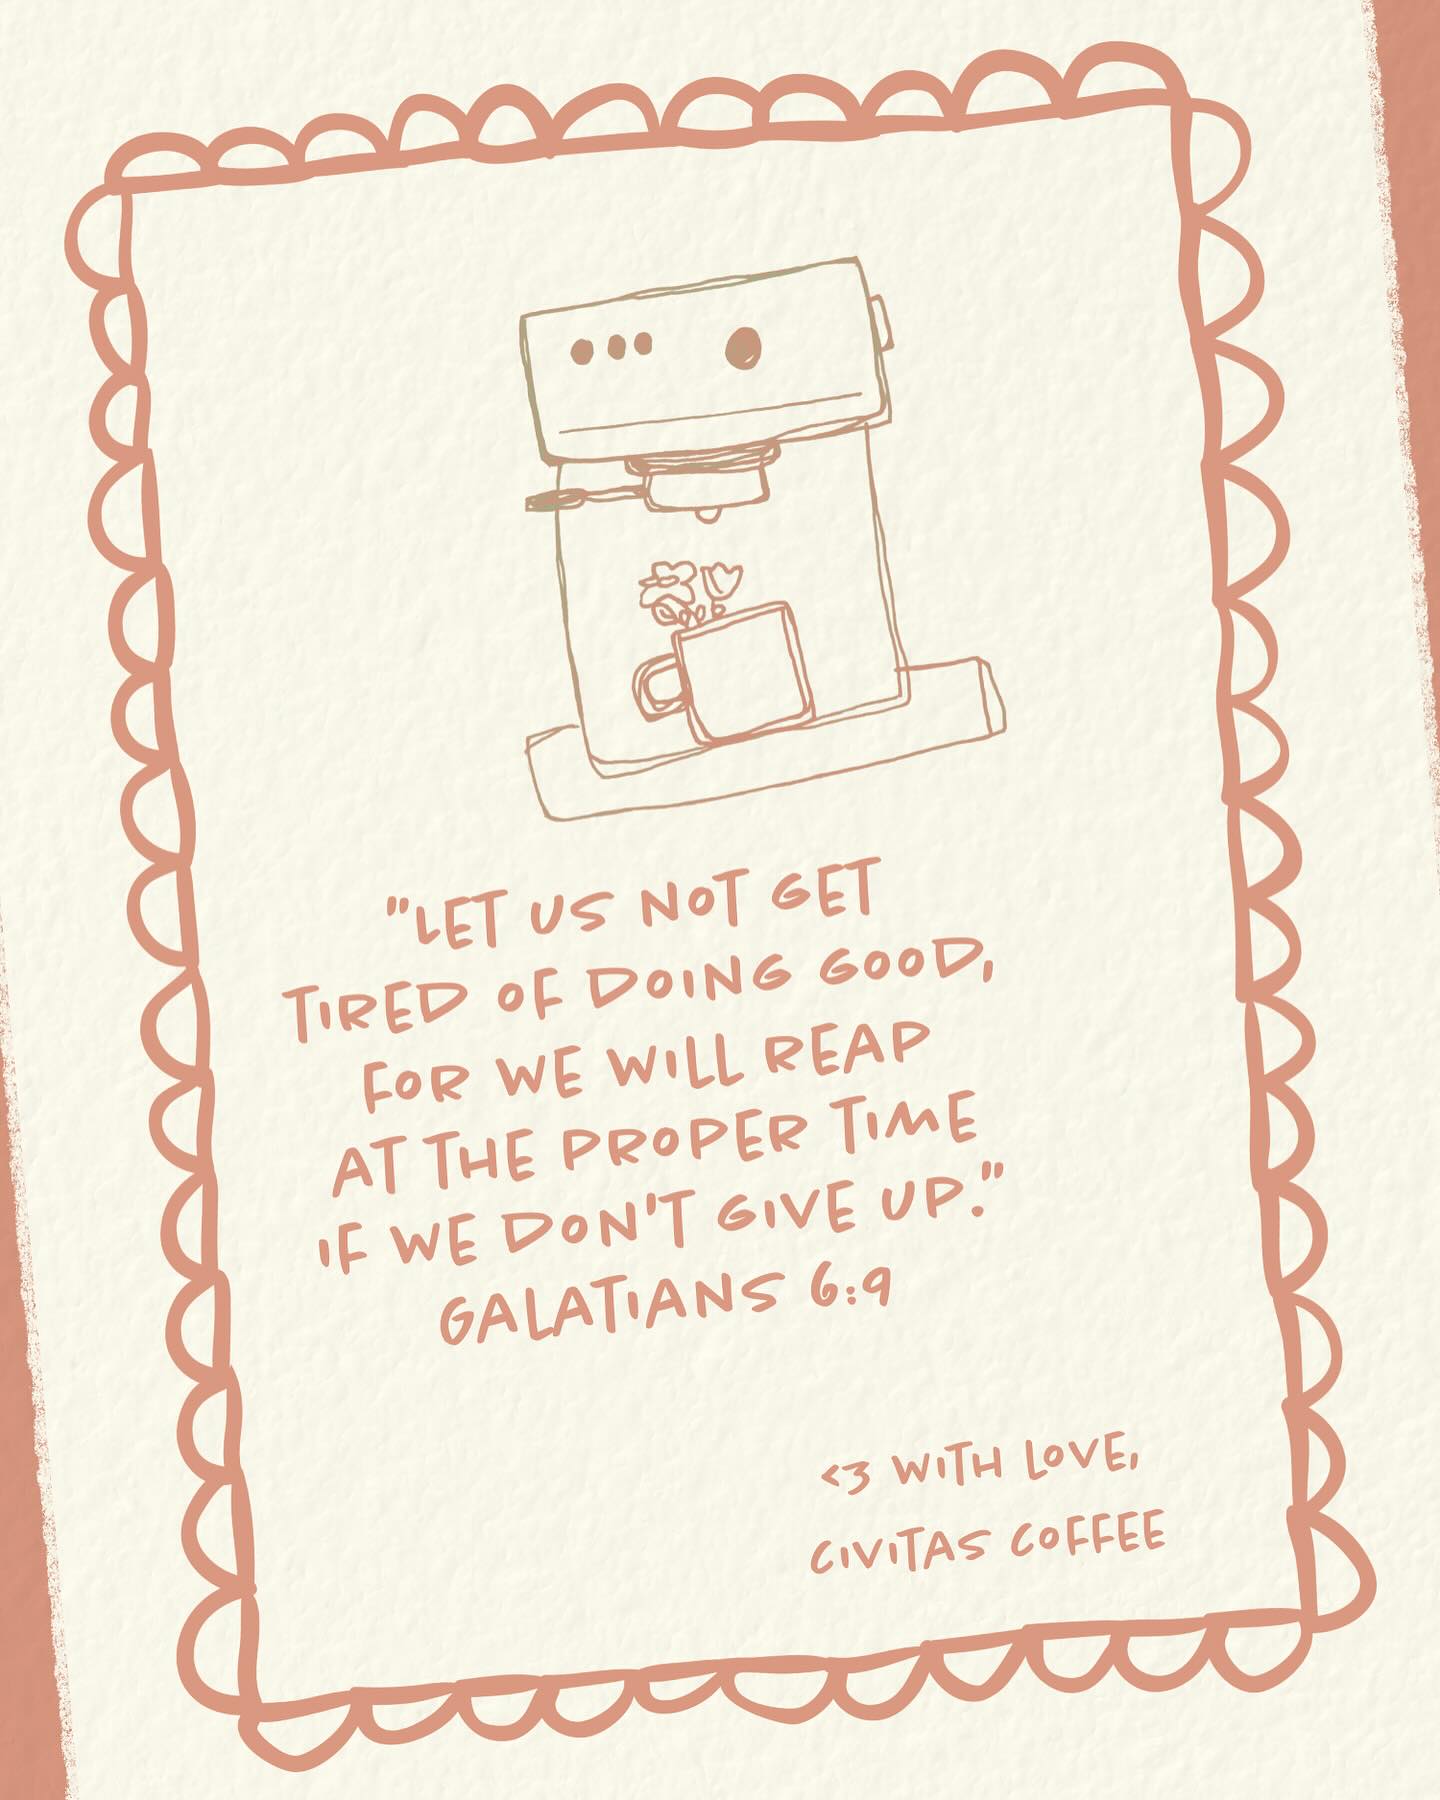 "LET US NOT GET
TIRED OF DOING GOOD,
FOR WE WILL REAP
AT THE PROPER TIME
IF WE DON'T GIVE UP."
GALATIANS 6:9
<3 WITH LOVE,
CIVITAS COFFEE